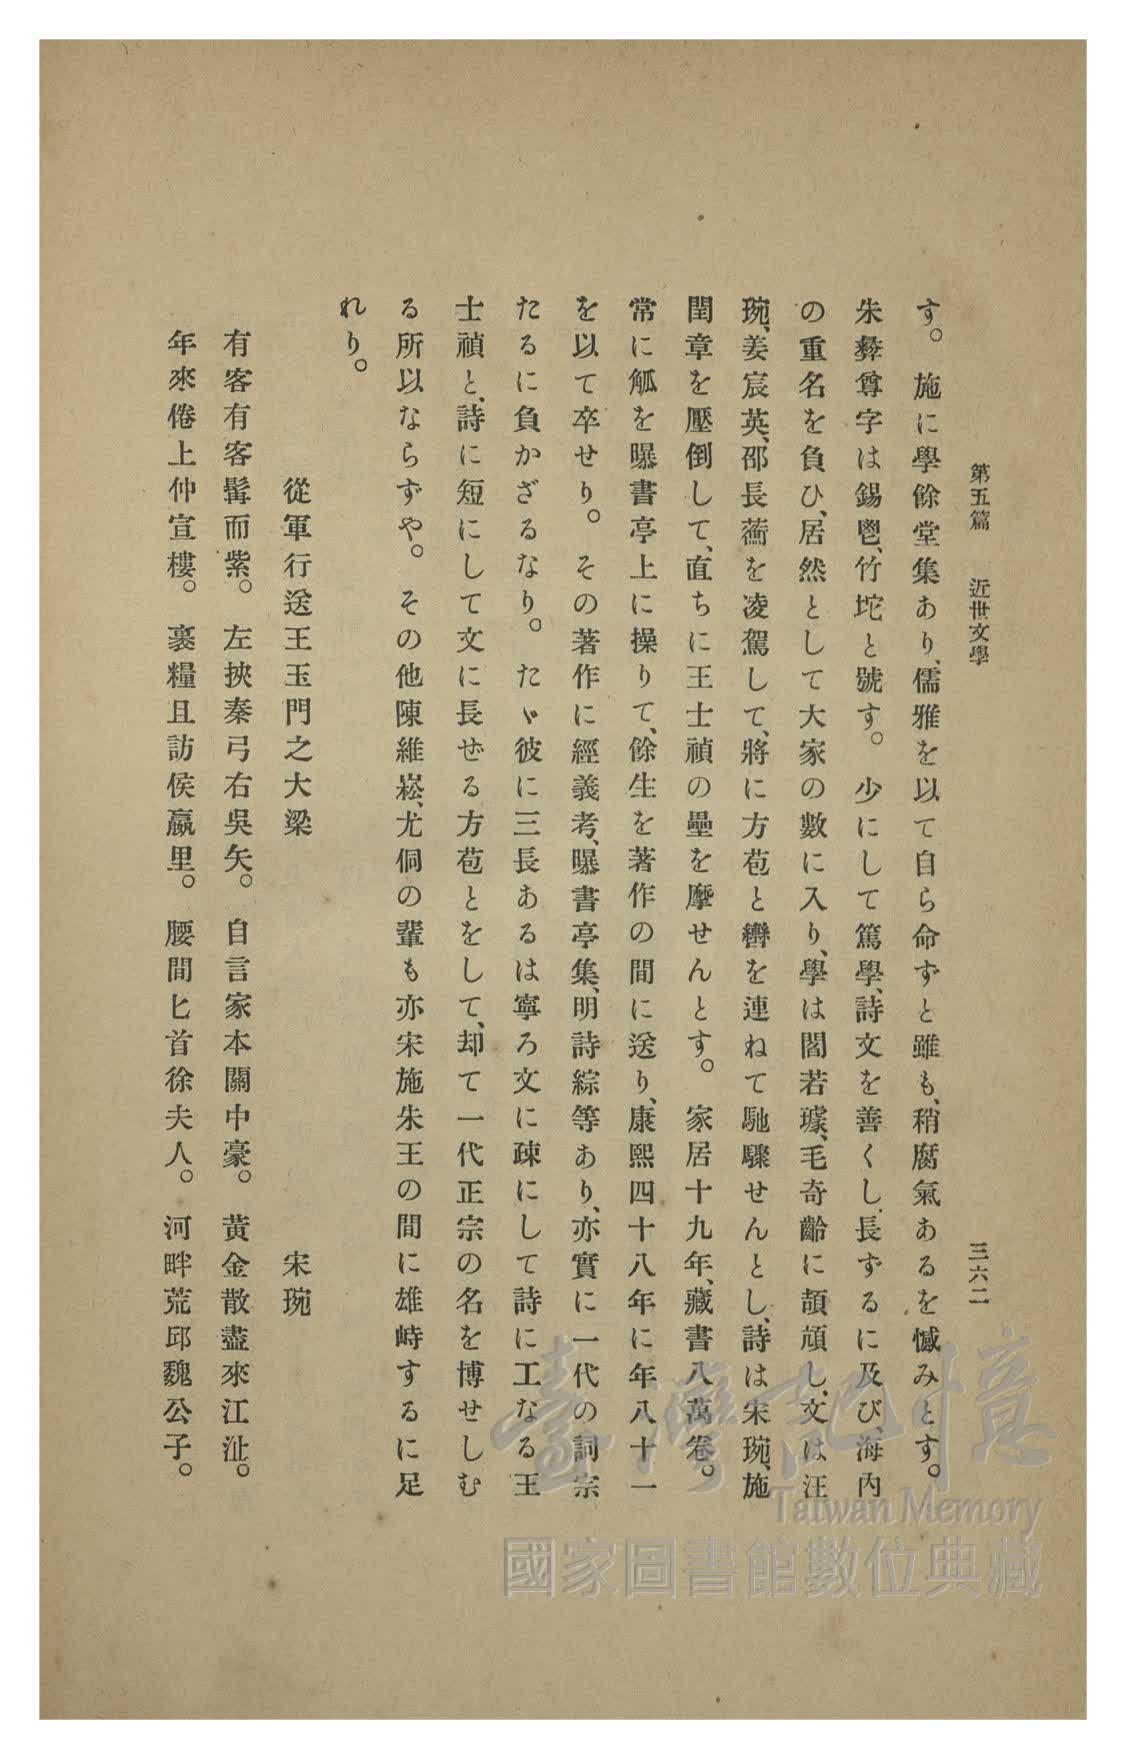 第五篇　近世文學　三六二
す。施に學餘堂集あり、儒雅を以て自ら命ずと雖も、稍腐氣あるを憾みとす。
朱彝尊字は錫鬯、竹坨と號す。少にして篤學、詩文を善くし、長ずるに及び、海內
の重名を負ひ、居然として大家の數に入り、學は閻若璩、毛奇齡に頡頏し、文は汪
琬、姜宸英、邵長蘅を凌駕して、將に方苞と轡を連ねて馳驟せんとし、詩は宋琬、施
閏章を壓倒して、直ちに王士禎の壘を摩せんとす。家居十九年、藏書八萬卷。
常に觚を曝書亭上に操りて、餘生を著作の間に送り、康熙四十八年に年八十一
を以て卒せり。その著作に經義考、曝書亭集、明詩綜等あり、亦實に一代の詞宗
たるに負かざるなり。たゞ彼に三長あるは寧ろ文に疎にして詩に工なる王
士禎と、詩に短にして文に長せる方苞とをして、却て一代正宗の名を博せしむ
る所以ならずや。その他陳維崧、尤侗の輩も亦宋施朱王の間に雄峙するに足
れり。
從軍行送王玉門之大梁　宋琬
有客有客髯而紫。左挾秦弓右吳矢。自言家本關中豪。黃金散盡來江沚。
年來倦上仲宣樓。裹糧且訪侯嬴里。腰間匕首徐夫人。河畔荒邱魏公子。
臺灣記憶
Taiwan Memory
國家圖書館數位典藏